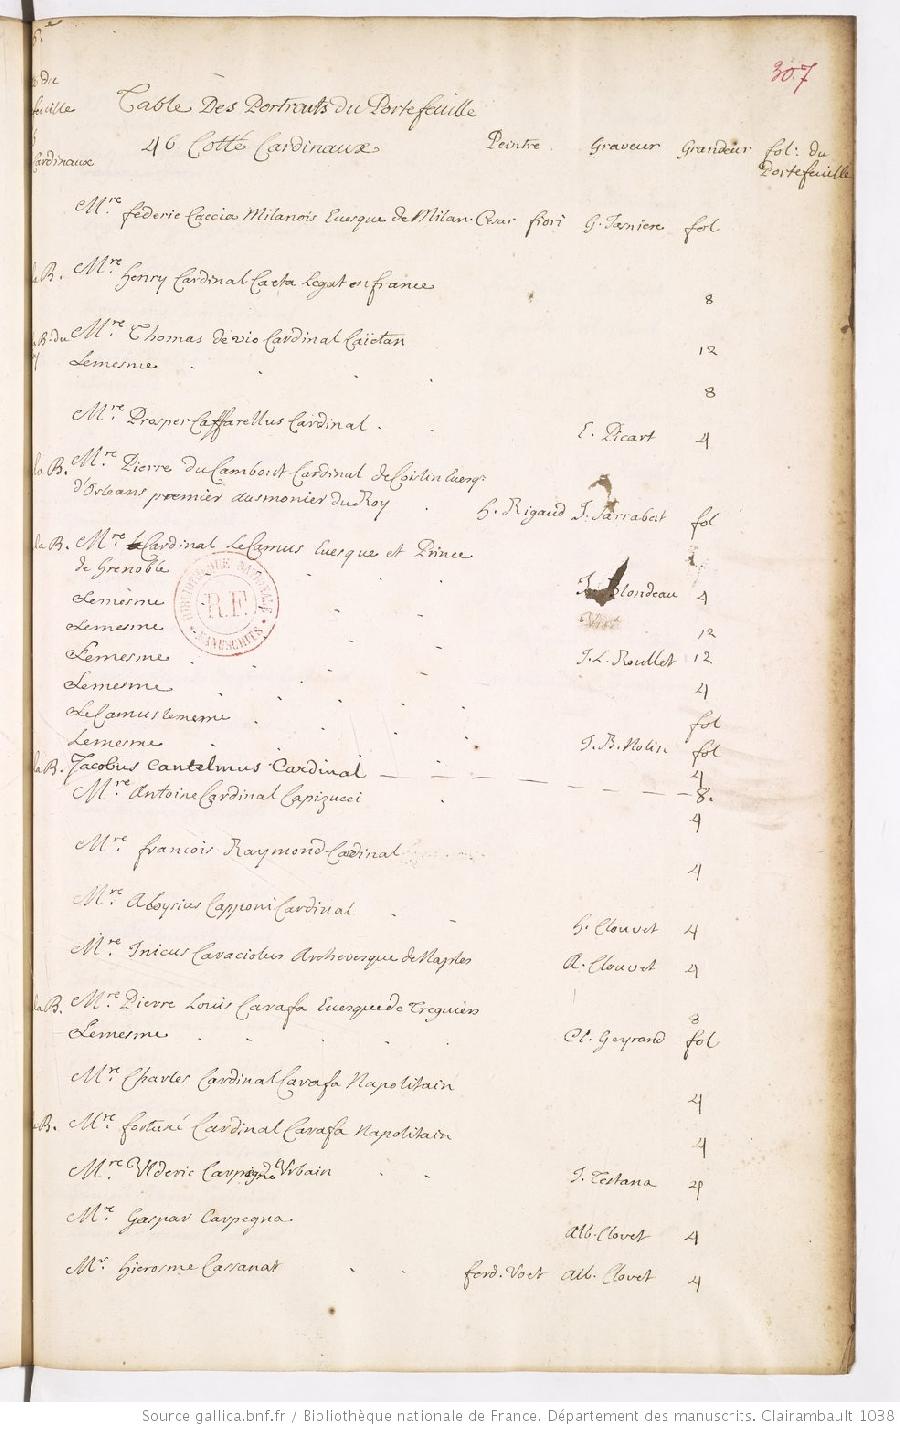 307
Table Des Portraits du Portefeuille
46 Cotté Cardinaux Peintre Graveur Grandeur fol: du Portefeuille
Mre. féderic Caccia Milanois Euesque de Milan. Cesar fiori G. Tasniere fol
la B. Mre. henry Cardinal Caeta legat en france 8
la B. du Mre. Thomas de vio Cardinal Caïetan 12
Lemesme 8
Mre. Prosper Caffarellus Cardinal E. Picart 4
la B. Mre. Pierre du Cambout Cardinal de Coislin Euesq.
d'Orleans premier ausmonier du Roy h. Rigaud J. Sarrabat fol
la B. Mre. Cardinal LeCamus Euesque et Prince
de Grenoble Blondeau 4
Lemesme
Lemesme 12
Lemesme J. L. Roullet 12
Lemesme 4
LeCamus lememe fol
Lemesme J. B. Nolin fol
la B. Jacobus Cantelmus Cardinal 4
Mre. Antoine Cardinal Capizucci 8.
4
Mre. francois Raymond Cardinal 4
Mre. Aloysius Capponi Cardinal h. Clouvet 4
Mre. Inicus Caraciolus Archevesque de Naples A. Clouvet 4
la B. Mre. Pierre Louis Carafa Euesque de 8
Lemesme fol
Mre. Charles Cardinal Carafa Napolitain 4
B. Mre. fortuné Cardinal Carafa Napolitain 4
Mre. Vlderic Urbain J. Testana 4
Mre. Gaspar Carpegna Alb. Clovet 4
Mr. hierosme Cassanat ferd. Voet Alb. Clovet 4
BIBLIOTHEQUE NATIONALE
R.F.
MANUSCRITS
Source gallica.bnf.fr / Bibliothèque nationale de France. Département des manuscrits. Clairambault 1038